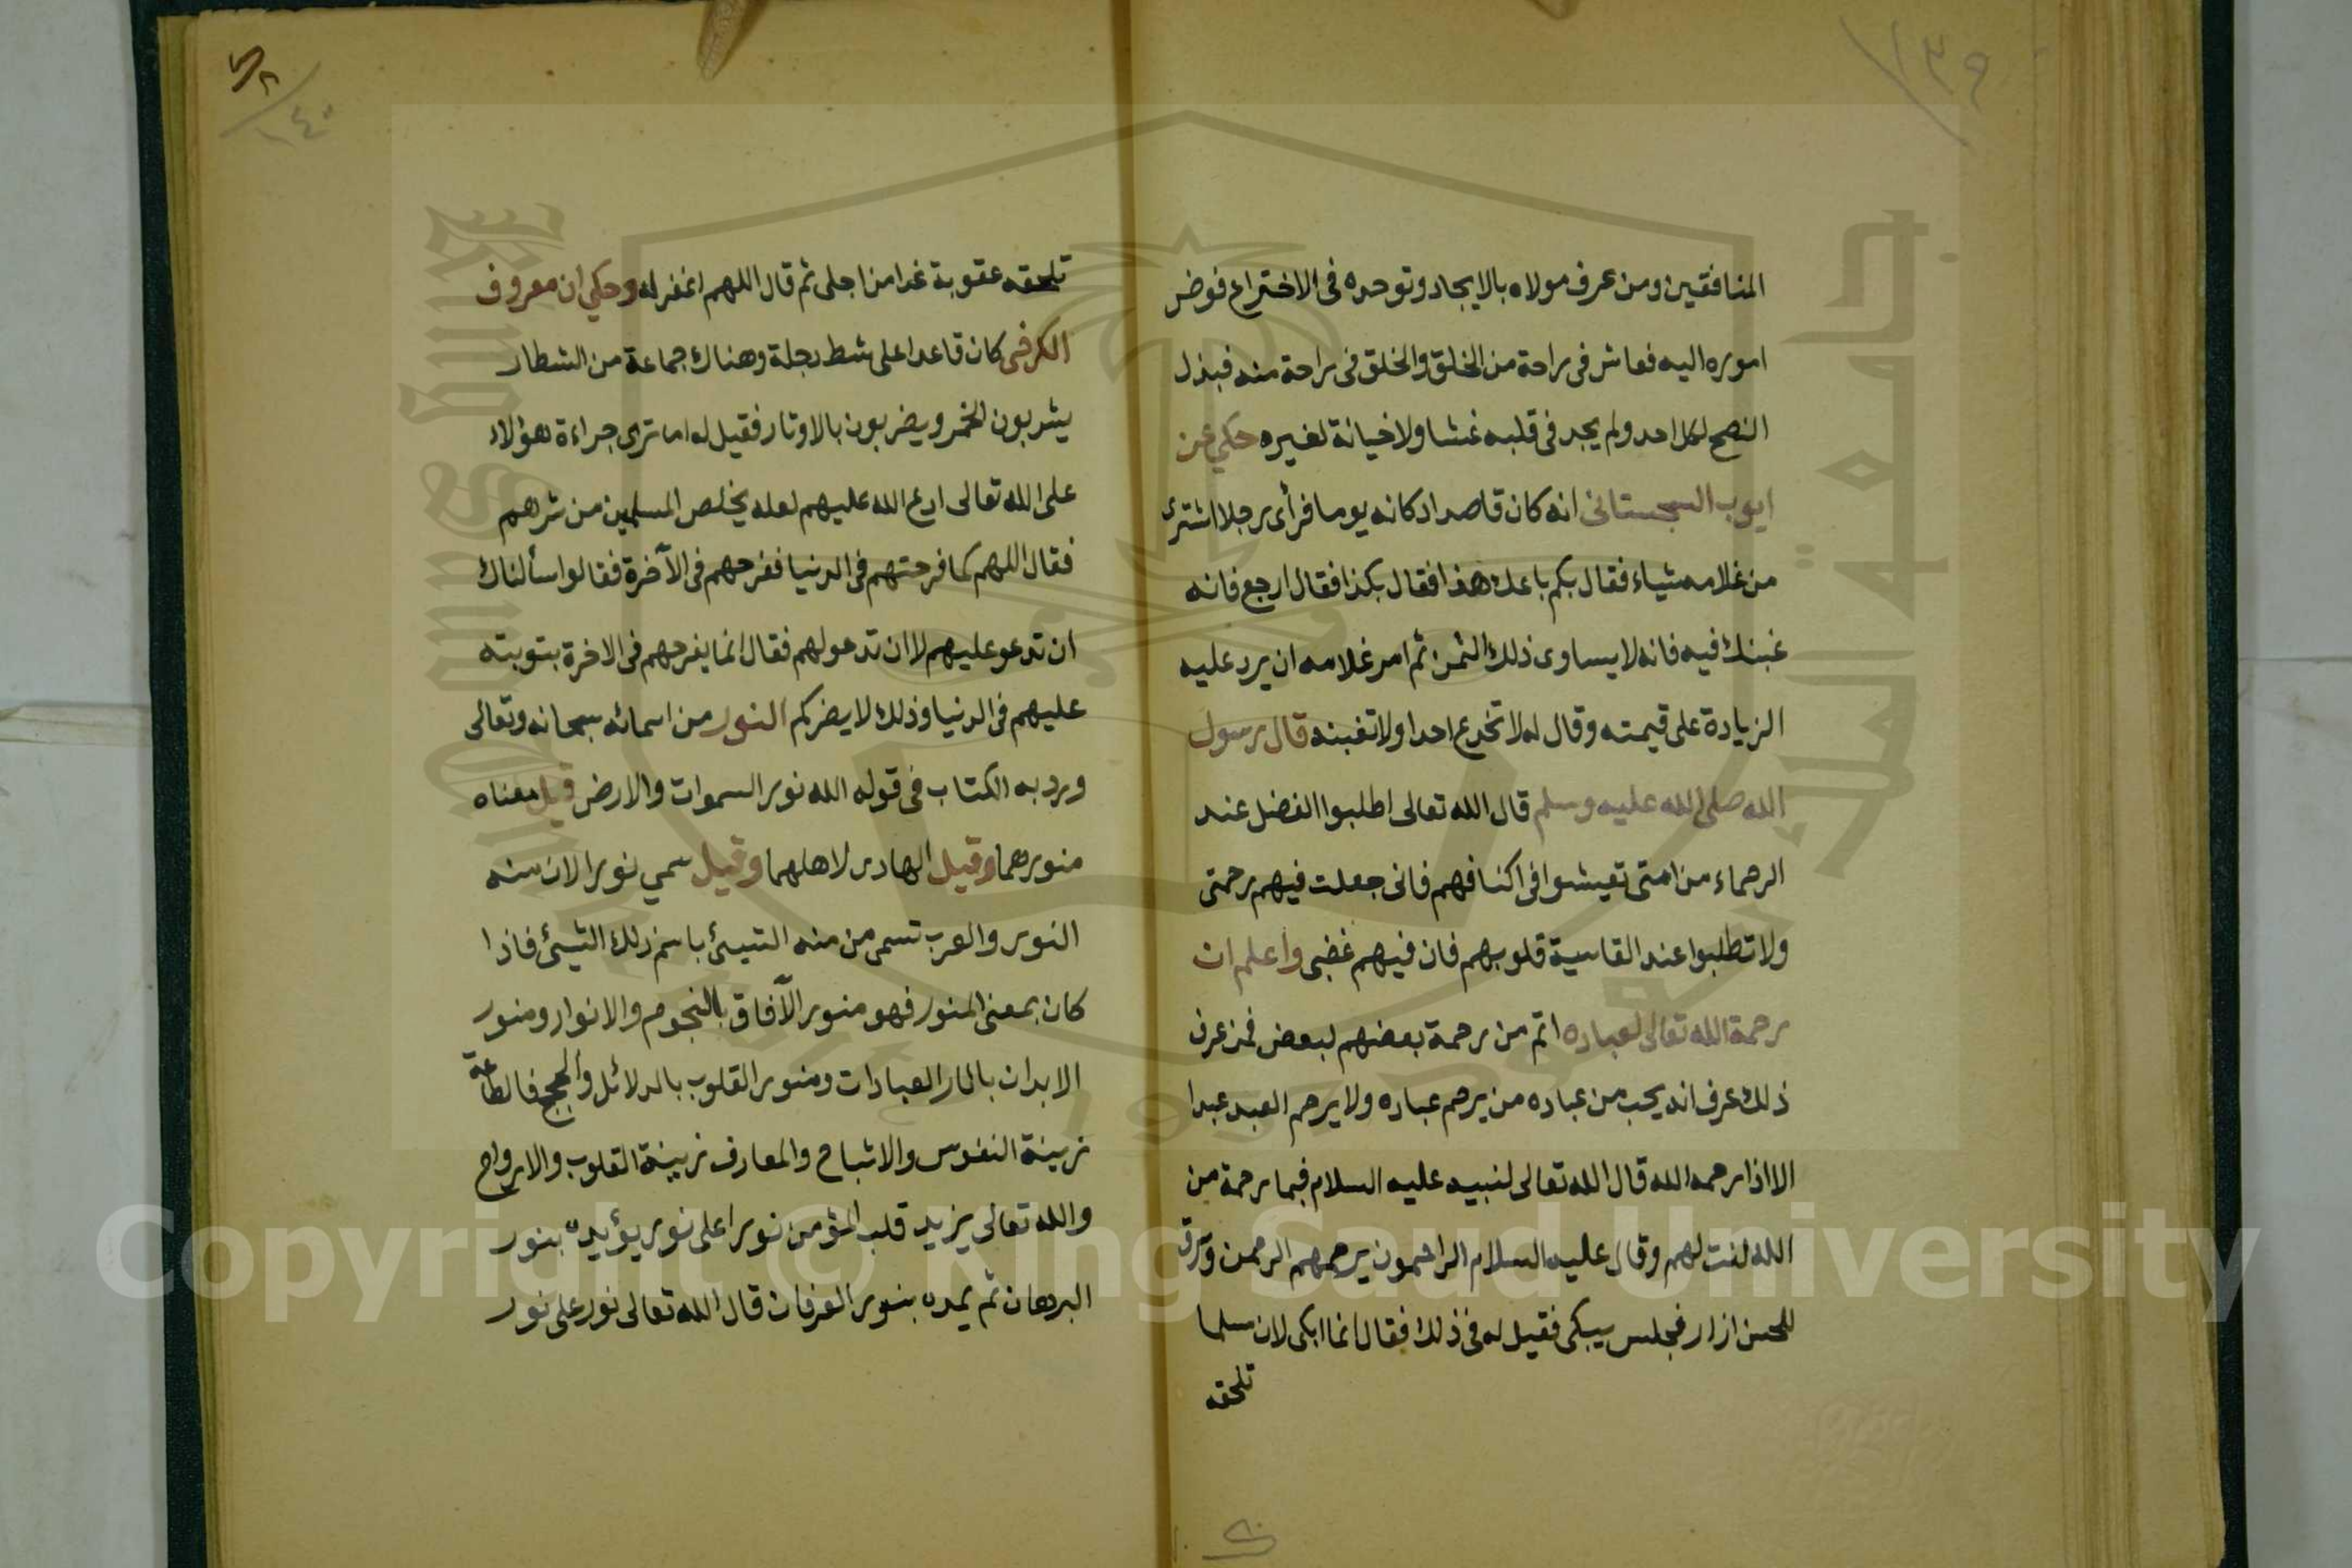 ١٣٩
المنافقين ومن عرف مولاه بالايجاد وتوحده فى الاختراع فوض
اموره اليه فعاش فى راحة من الخلق والخلق فى راحة منه فبذل
النصح لكل احد ولم يجد فى قلبه غشا ولا خيانة لغيره حكي عن
ايوب السجستانى انه كان قاصدا دكانه يوما فرأى رجلا اشترى
من غلامه شياء فقال بكم باعك هذا فقال بكذا فقال ارجع فانه
غبنك فيه فانه لا يساوى ذلك الثمن ثم امر غلامه ان يرد عليه
الزيادة على قيمته وقال له لا تخدع احدا ولا تغبنه قال رسول
الله صلى الله عليه وسلم قال الله تعالى اطلبوا الفضل عند
الرحماء من امتى تعيشوا فى اكنافهم فانى جعلت فيهم رحمتى
ولا تطلبوا عند القاسية قلوبهم فان فيهم غضبى واعلم ان
رحمة الله تعالى لعباده اتم من رحمة بعضهم لبعض فمن عرف
ذلك عرف انه يحب من عباده من يرحم عباده ولا يرحم العبد عبدا
الا اذا رحمه الله قال الله تعالى لنبيه عليه السلام فبما رحمة من
الله لنت لهم وقال عليه السلام الراحمون يرحمهم الرحمن وسرق
للحسن ازار فجلس يبكى فقيل له فى ذلك فقال انما ابكى لان مسلما
تلحقه
١٤٠
تلحقه عقوبة غدا من اجلى ثم قال اللهم اغفر له وحكي ان معروف
الكرخى كان قاعدا على شط دجلة وهناك جماعة من الشطار
يشربون الخمر ويضربون بالاوتار فقيل له اما ترى جراءة هؤلاء
على الله تعالى ادع الله عليهم لعله يخلص المسلمين من شرهم
فقال اللهم كما فرحتهم فى الدنيا ففرحهم فى الآخرة فقالوا سألناك
ان تدعو عليهم لا ان تدعو لهم فقال انما يفرحهم فى الاخرة بتوبته
عليهم فى الدنيا وذلك لا يضركم النور من اسمائه سبحانه وتعالى
ورد به الكتاب فى قوله الله نور السموات والارض قيل معناه
منورهما وقيل الهادى لاهلهما وقيل سمي نورا لان منه
النور والعرب تسمى من منه الشيئ باسم ذلك الشيئ فاذا
كان بمعنى المنور فهو منور الآفاق بالنجوم والانوار ومنور
الابدان باثار العبادات ومنور القلوب بالدلائل والحجج فالطاعة
زينة النفوس والاشباح والمعارف زينة القلوب والارواح
والله تعالى يزيد قلب المؤمن نورا على نور يؤيده بنور
البرهان ثم يمده بنور العرفان قال الله تعالى نور على نور
Copyright © King Saud University